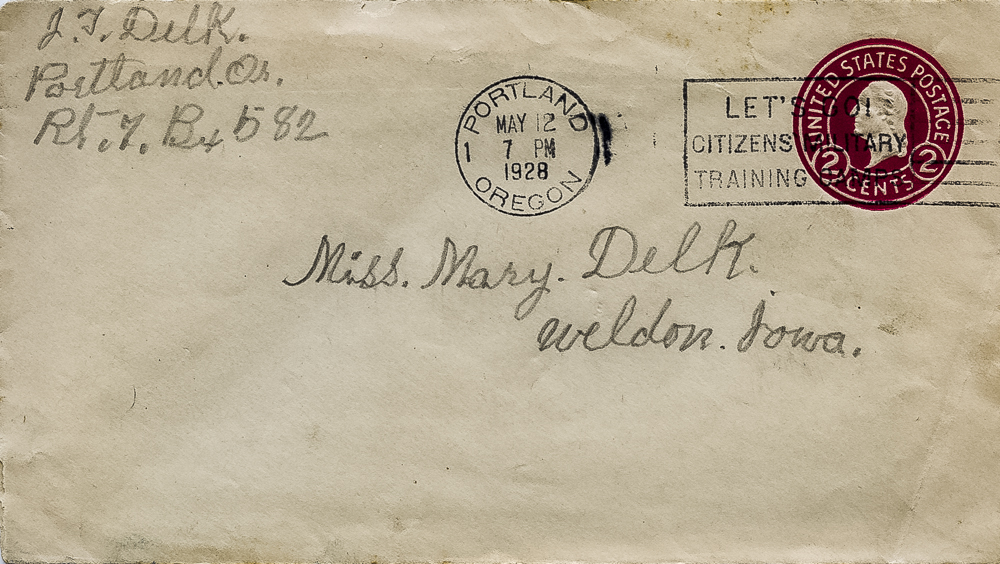 J.T. Delk.
Portland. Or.
Rt. 7. Bx 582
PORTLAND
MAY 12
1 7 PM
1928
OREGON
LET'S GO!
CITIZENS MILITARY
TRAINING CAMPS
UNITED STATES POSTAGE
2 CENTS 2
Miss. Mary. Delk.
Weldon. Iowa.